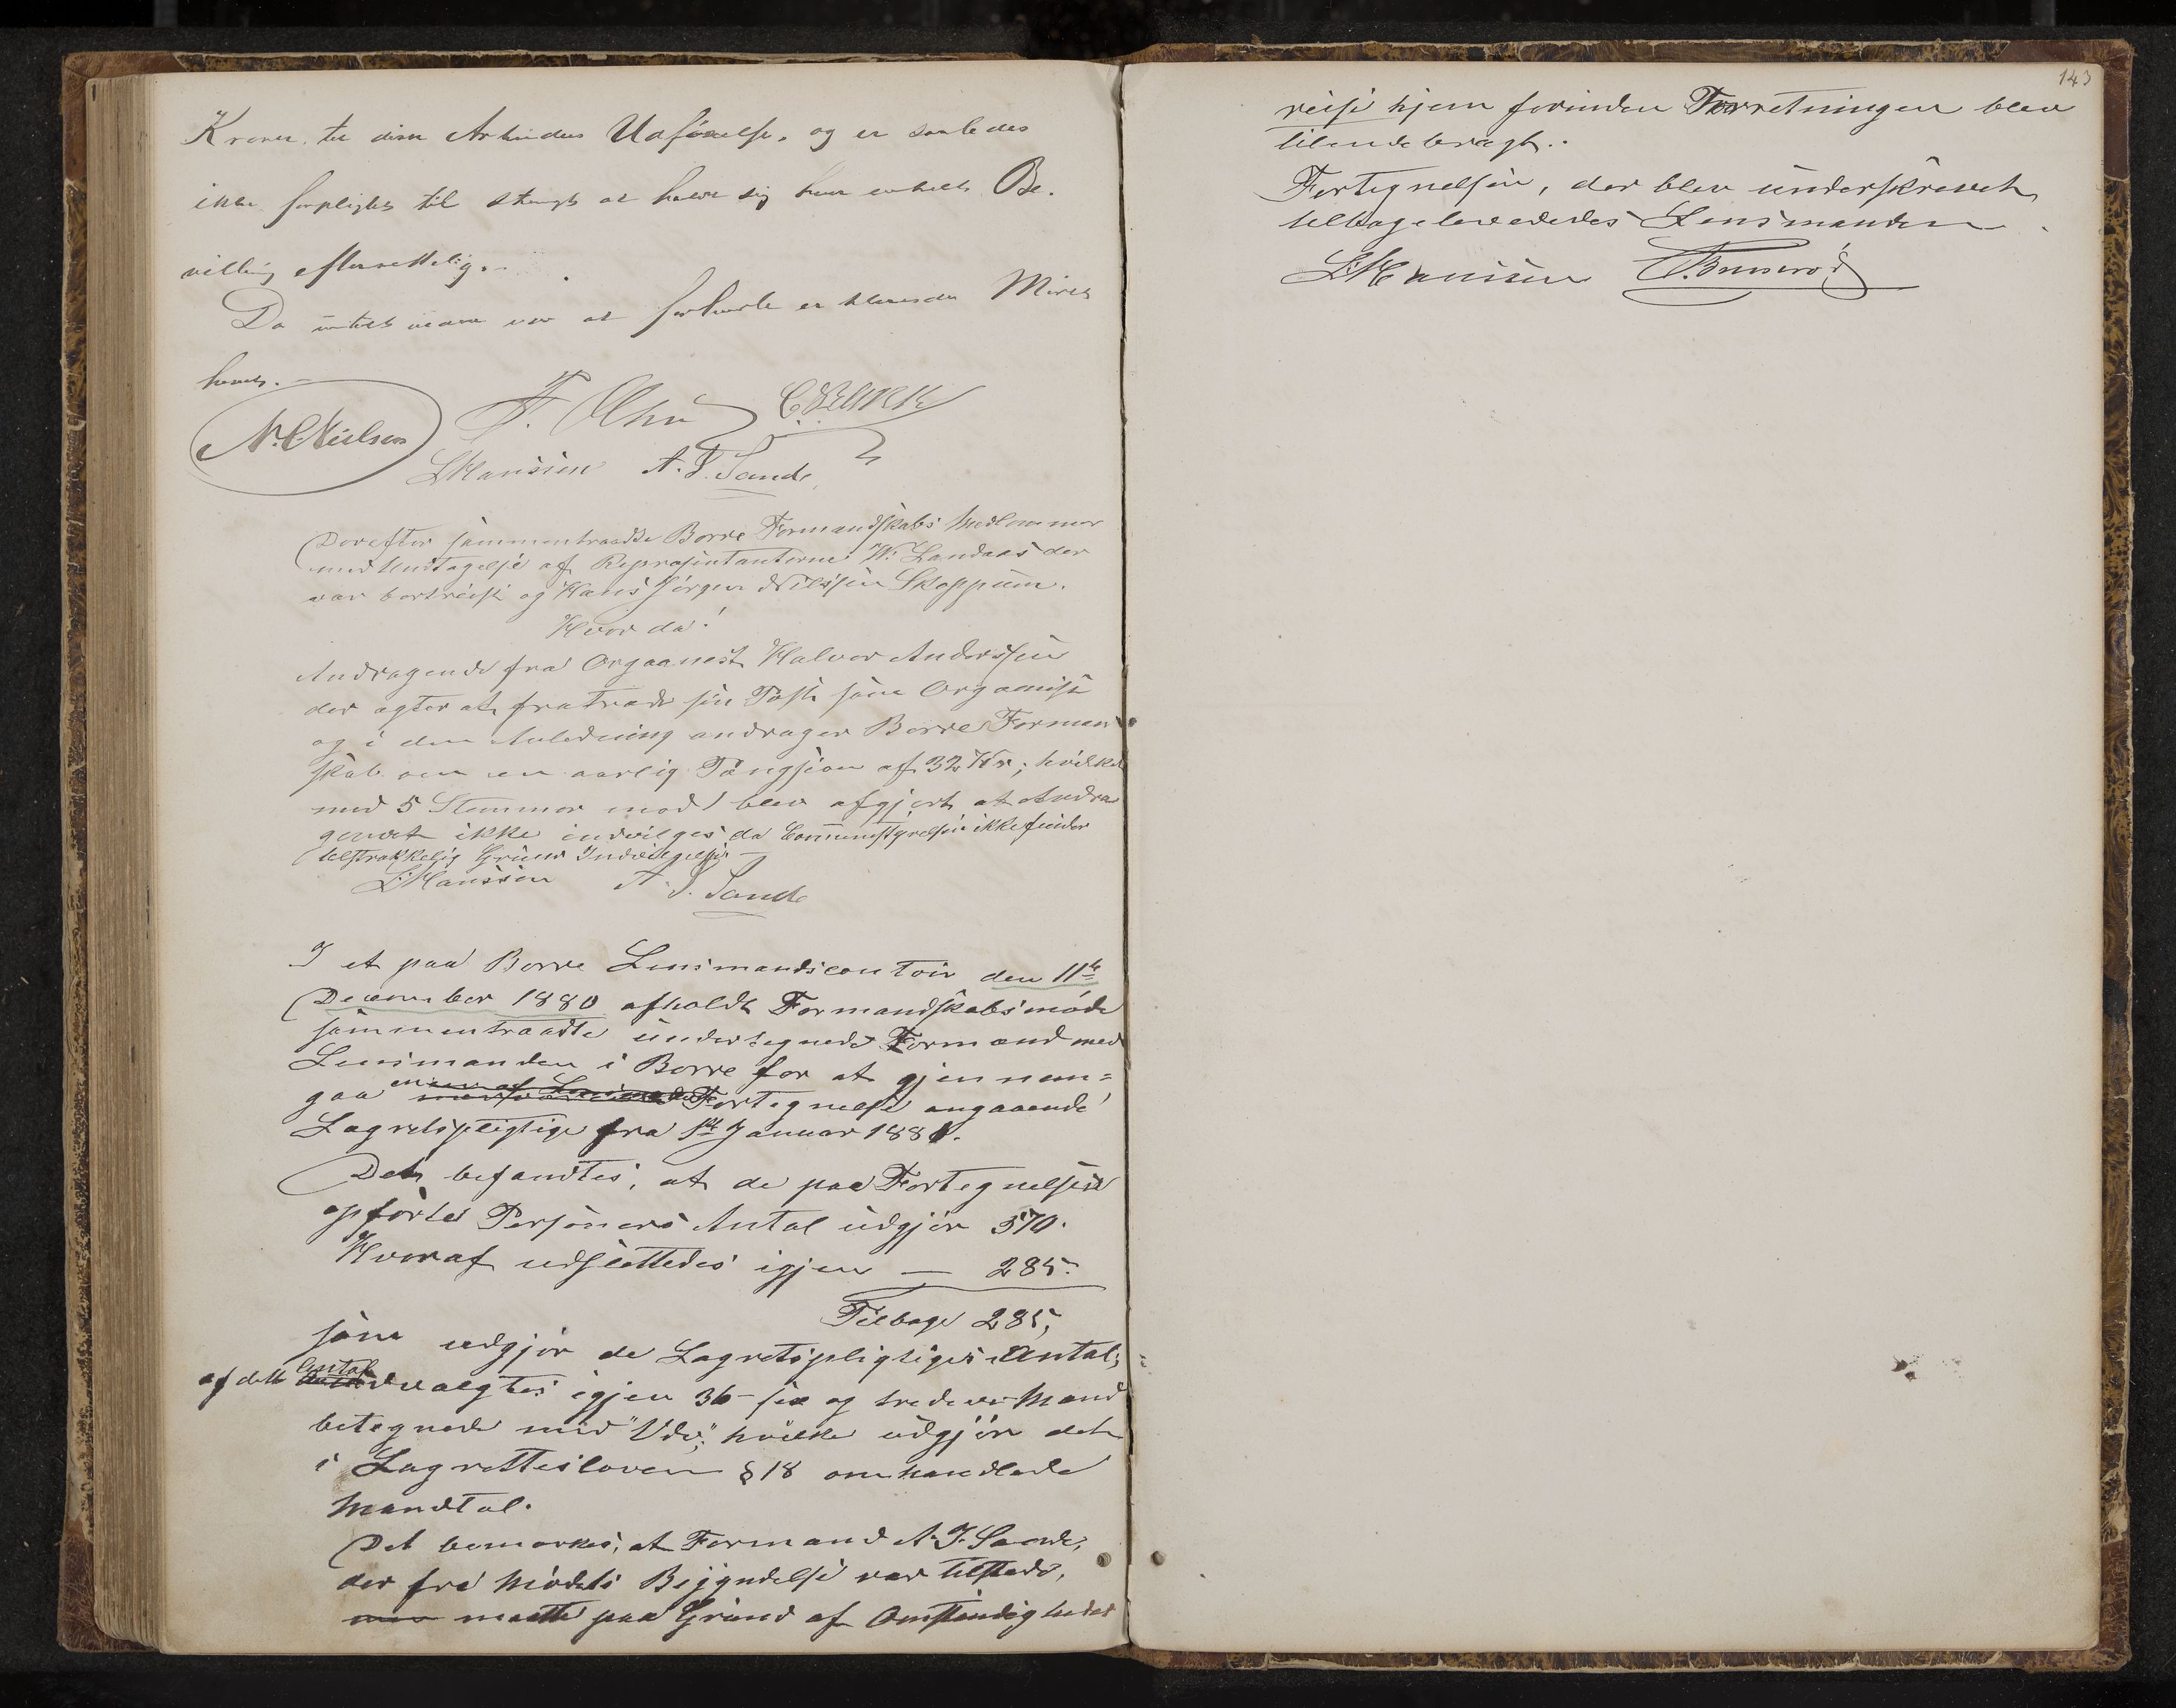 Kroner til disse Arbeiders Udförelse, og er saaledes
ikke forpligtet til strengt at holde sig hver enkelt Be-
villing efterrettelig.
Da intet mere var at forhandle er
hævet.
N. C. Nielsen F. Olsen
L Hanssen A. J. Sande
Derefter sammentraadte Borre Formandskabs Medlemmer
med Undtagelse af Repræsentanterne W. Landaas der
var bortreist og Hans Jörgen Nilssen Skoppum.
Hvor da!
Andragende fra Organist Halvor Anderssen
der agter at fratræde sin Post som Organist
og i den Anledning andrager Borre Forman
skab om en aarlig Pangsion af 32 Kr; hvilket
med 5 Stemmer mod 1 blev afgjort at Andra
gendet ikke indvilges da Communestyrelsen ikke finder
tilstrækkelig Grund Indvilgelse
L Hanssen A. J. Sande
I et paa Borre Lensmandscontoir den 11te
December 1880 afholdt Formandskabsmöde
sammentraadte undertegnede Formand med
Lensmanden i Borre for at gjennem=
gaa en af Fortegnelse angaaende
Lagretspligtige fra 1st Januar 1881.
Det befandtes, at de paa Fortegnelsen
opförte Personers Antal udgjör 570.
Hvoraf udslettedes igjen — 285.
Tilbage 285,
som udgjör de Lagretspligtiges Antal;
af dette Antal udvalgtes igjen 36 - sex og tredive Mænd
betegnede med "Udv." hvilke udgjör det
i Lagrettesloven § 18 omhandlede
Mandtal.
Det bemærkes, at Formand A. J. Sande,
der fra Mödets Begyndelse var tilstede,
men maatte paa Grund af Omstændigheder
143
reise hjem forinden Forretningen blev
tilendebragt.
Fortegnelsen, der blev underskrevet,
tilbageleveredes Lensmanden.
L Hanssen